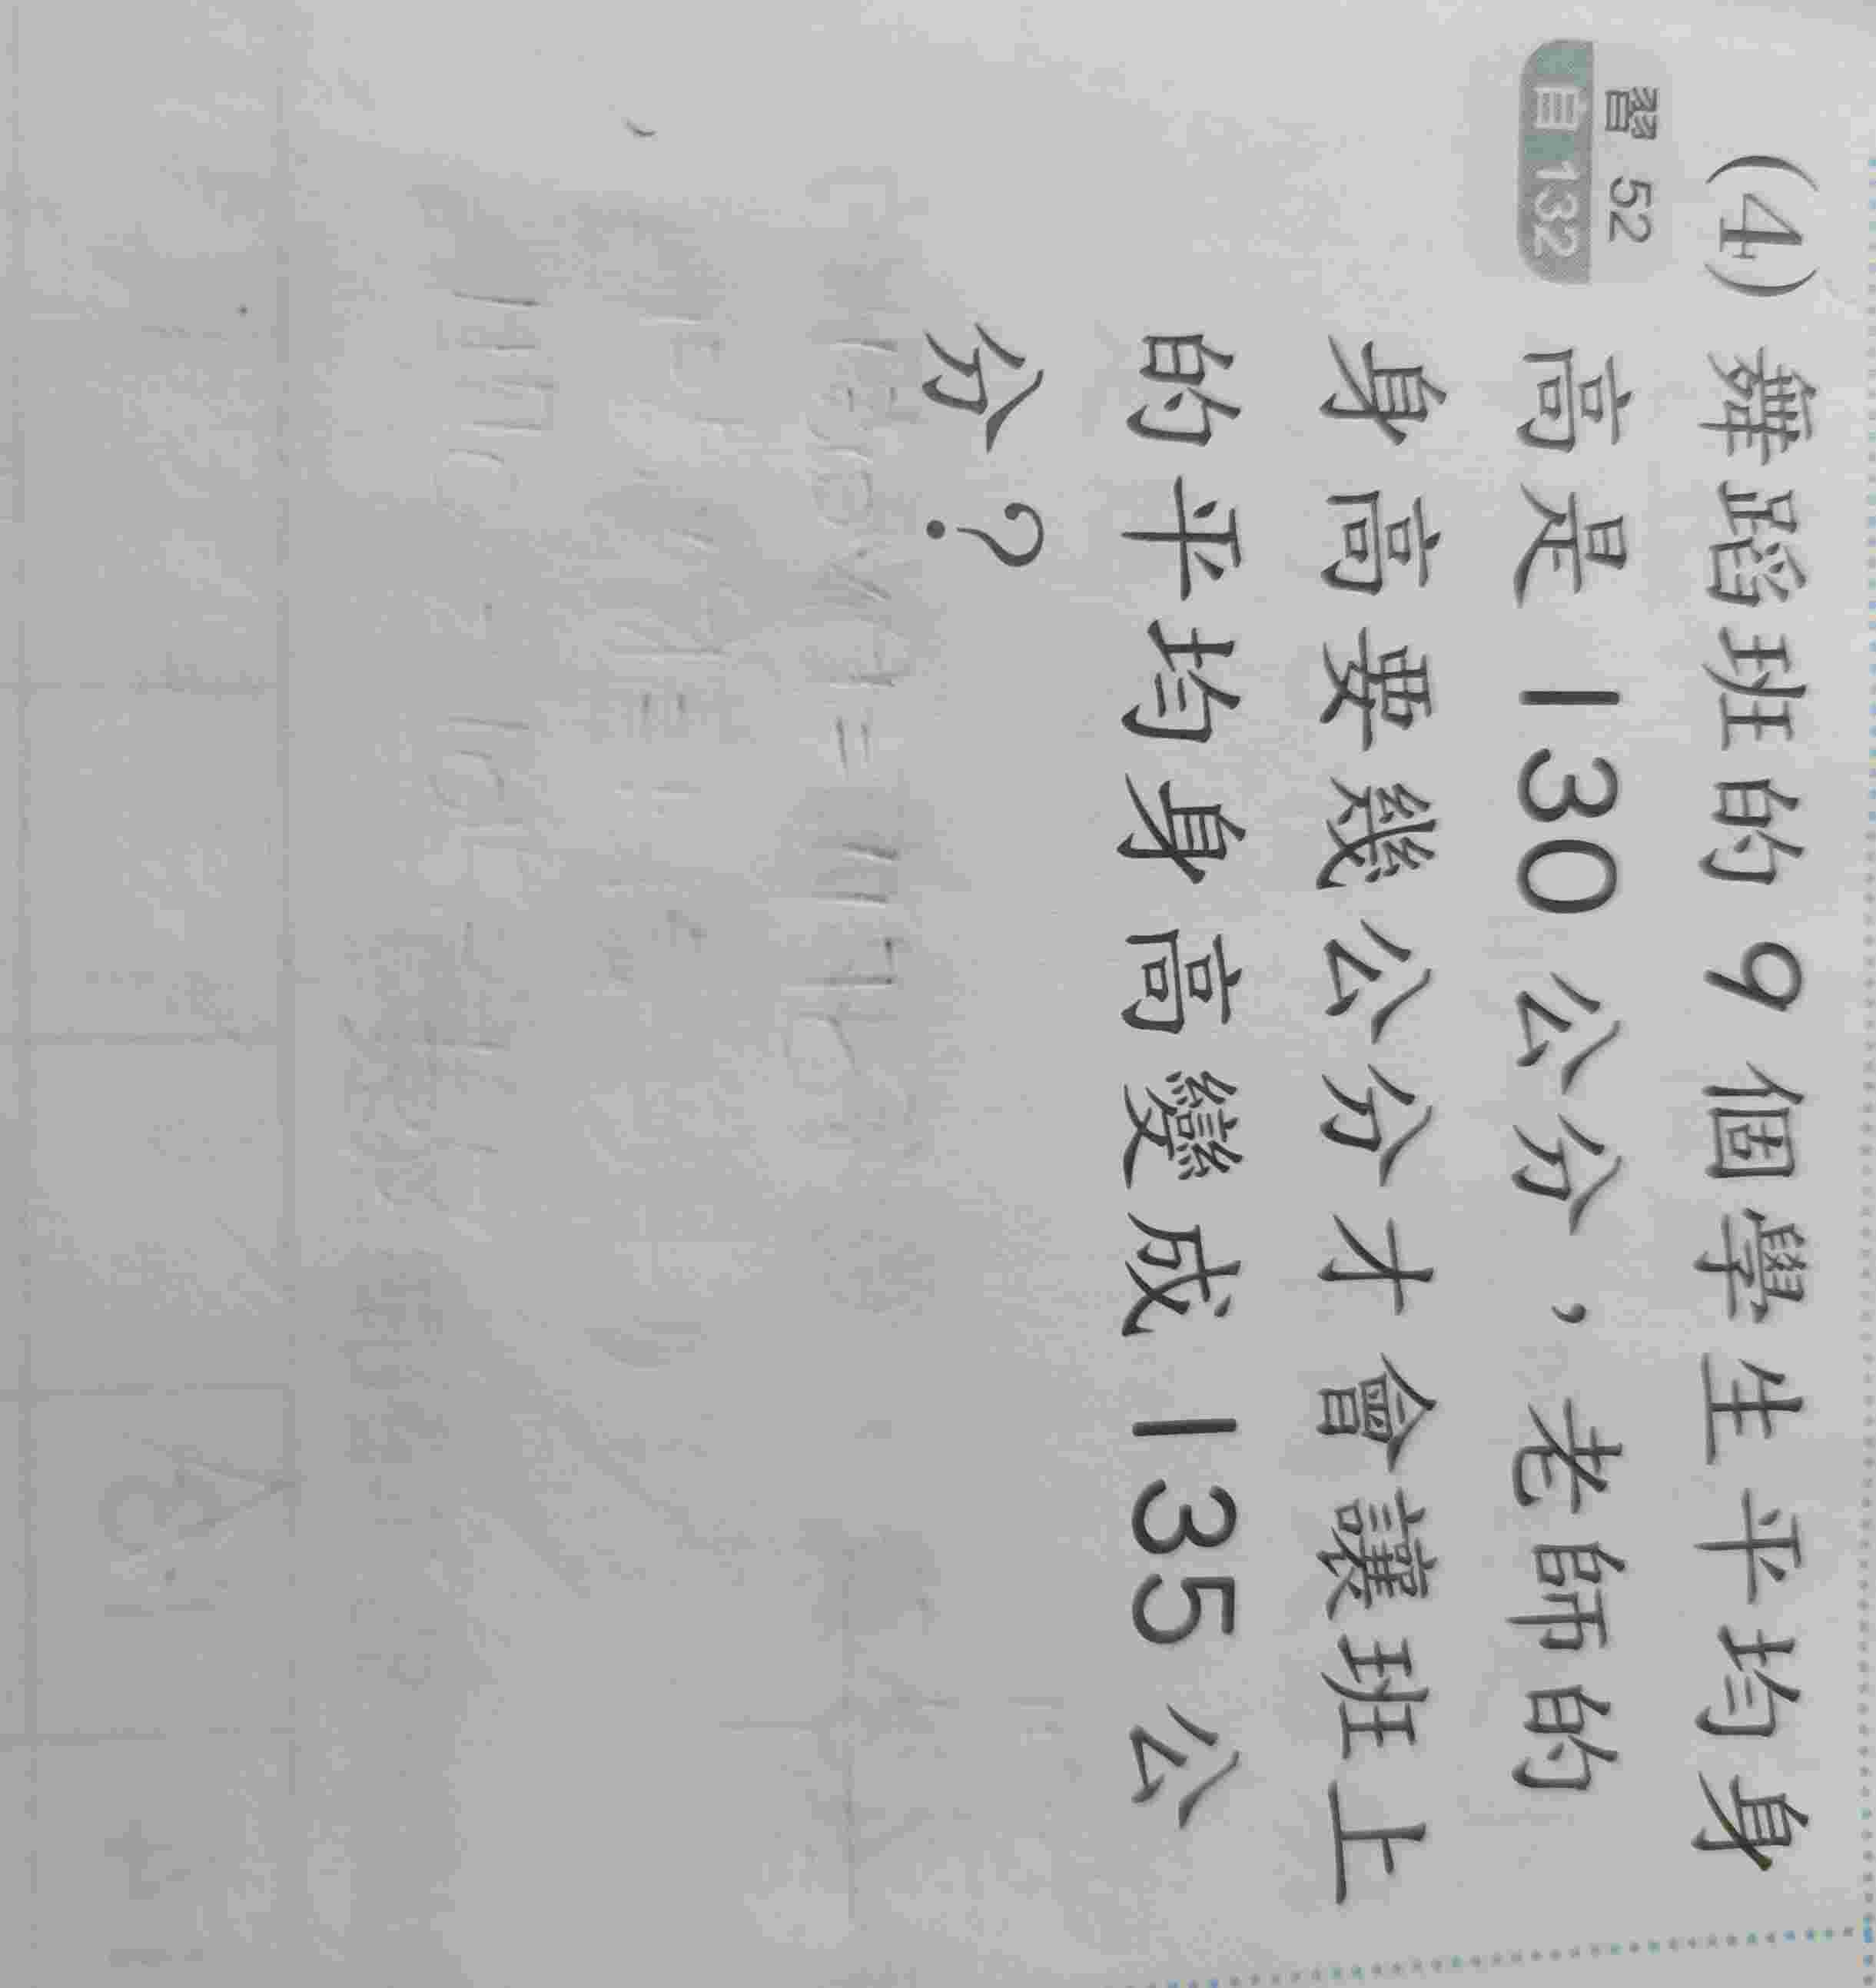 (4) 舞蹈班的 9 個學生平均身
習 52
自 132
高是 130 公分，老師的
身高要幾公分才會讓班上
的平均身高變成 135 公
分？